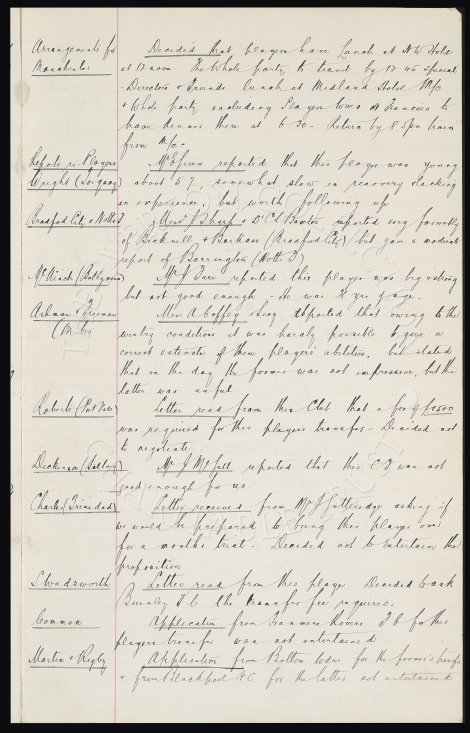 Arrangements for Decided that players have Lunch at N.W. Hotel
Manchester at 12 noon The Whole party to travel by 12-45 special
Directors & friends lunch at Midland Hotel M/c
& Whole party including Players to
have dinner there at 6-30. Return by 8. 5pm train
from M/c.
Reports re Players reported that this player was young
Wright (Torquay) about 5. 7, somewhat slow in recovery lacking
in experience, but worth following up
Bradford City v Notts F Messrs Sharp & Dr C S Baxter reported very favourably
of Bicknell & Barkas (Bradford City) but gave a moderate
report of Barrington (Notts F)
(Ballymena) Mr J reported this player was big & strong
but not good enough - He was yrs of age.
& Freeman Mess A Coffey & reported that owing to the
wintry conditions it was hardly possible to give a
correct estimate of these players' abilities, but stated
that on the day the former was not impressive, but the
latter was awful
Roberts (Port Vale) Letter read from this Club that a fee of £1500
was required for this players transfer. Decided not
to negotiate
Dickinson (Saltney) Mr J McGill reported that this C.F. was not
good enough for us
Charles (Trinidad) Letter received from Mr J Gutteridge asking if
we would be prepared to bring this Player over
for a months trial. Decided not to entertain the
proposition
S Wadsworth Letter read from this player Decided to ask
Burnley F C the transfer fee required.
Common Application from Tranmere Rovers F C for this
players transfer was not entertained
Martin & Rigby Application from Bolton Wdrs for the former's transfer
& from Blackpool FC for the latter not entertained